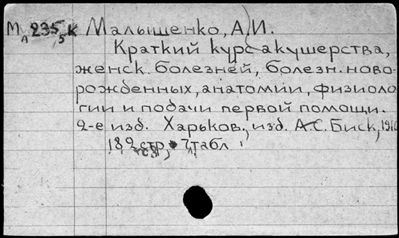 М 235 К Малышенко, А.И.
А 5
Краткий курс акушерства,
женск. болезней, болезн. ново-
рожденных, анатомии, физиоло-
гии и подачи первой помощи.
2-е изд. Харьков, изд. А.С. Биск,
182 стр., 7 табл.